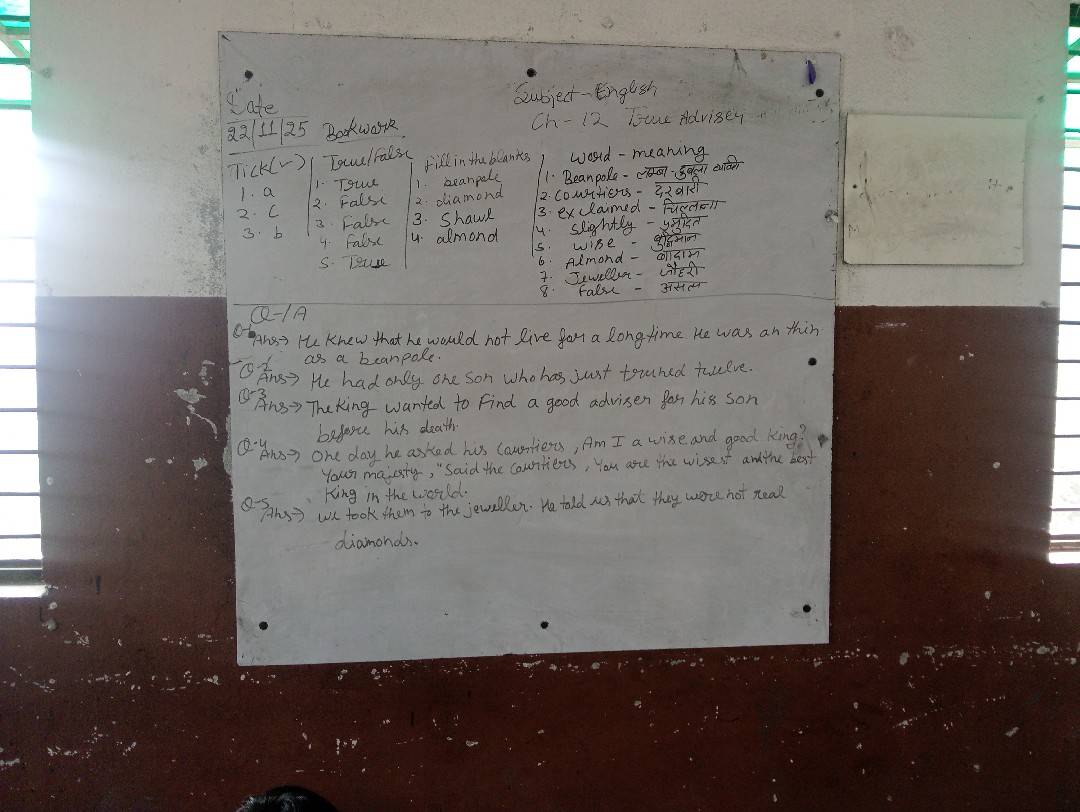 Subject - English
Date
22/11/25 Bookwork
Ch - 12 True Adviser
Tick(✓)
1. a
2. c
3. b
True/False
1. True
2. False
3. False
4. False
5. True
Fill in the blanks
1. beanpole
2. diamond
3. Shawl
4. almond
Word - meaning
1. Beanpole - लम्बा-दुबला व्यक्ति
2. Courtiers - दरबारी
3. exclaimed - चिल्लाना
4. slightly -
5. wise - बुद्धिमान
6. Almond - बादाम
7. Jeweller - जौहरी
8. False - असत्य
Q-1A
Q-1
Ans→ He knew that he would not live for a long time He was an thin
as a beanpole.
Q-2
Ans→ He had only one son who has just truned twelve.
Q-3
Ans→ The king wanted to Find a good adviser for his son
before his death.
Q-4
Ans→ One day he asked his Courtiers, Am I a wise and good king?
Your majesty, "Said the Courtiers, You are the wisest and the best
King in the world.
Q-5
Ans→ we took them to the jeweller. He told us that they were not real
diamonds.